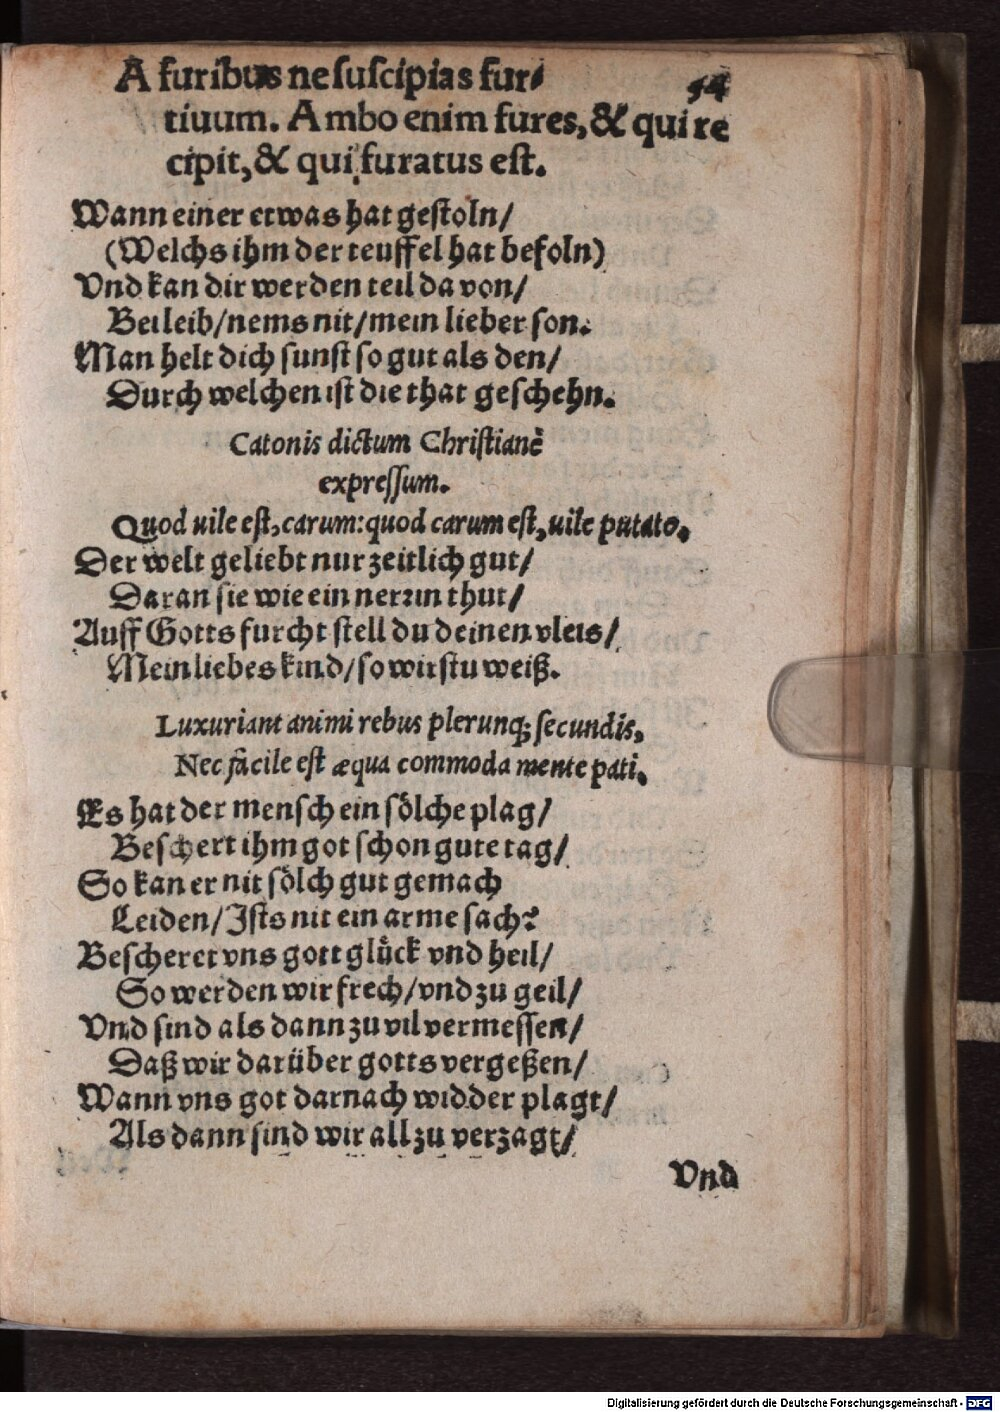 A furibus ne suscipias fur⸗ 54
tiuum. Ambo enim fures, & qui re
cipit, & qui furatus est.
Wann einer etwas hat gestoln/
(Welchs ihm der teuffel hat befoln)
Vnd kan dir werden teil da von/
Bei leib/ nems nit/ mein lieber son.
Man helt dich sunst so gut als den/
Durch welchen ist die that geschehn.
Catonis dictum Christianè
expressum.
Quod uile est, carum: quod carum est, uile putato.
Der welt geliebt nur zeitlich gut/
Daran sie wie ein nerrin thut/
Auff Gotts furcht stell du deinen vleis/
Mein liebes kind/ so wirstu weiß.
Luxuriant animi rebus plerunq; secundis,
Nec facile est æqua commoda mente pati.
Es hat der mensch ein sölche plag/
Beschert ihm got schon gute tag/
So kan er nit sölch gut gemach
Leiden/ Ists nit ein arme sach?
Bescheret vns gott glück vnd heil/
So werden wir frech/ vnd zu geil/
Vnd sind als dann zu vil vermessen/
Daß wir darüber gotts vergeßen/
Wann vns got darnach widder plagt/
Als dann sind wir all zu verzagt/
Vnd
Digitalisierung gefördert durch die Deutsche Forschungsgemeinschaft - DFG